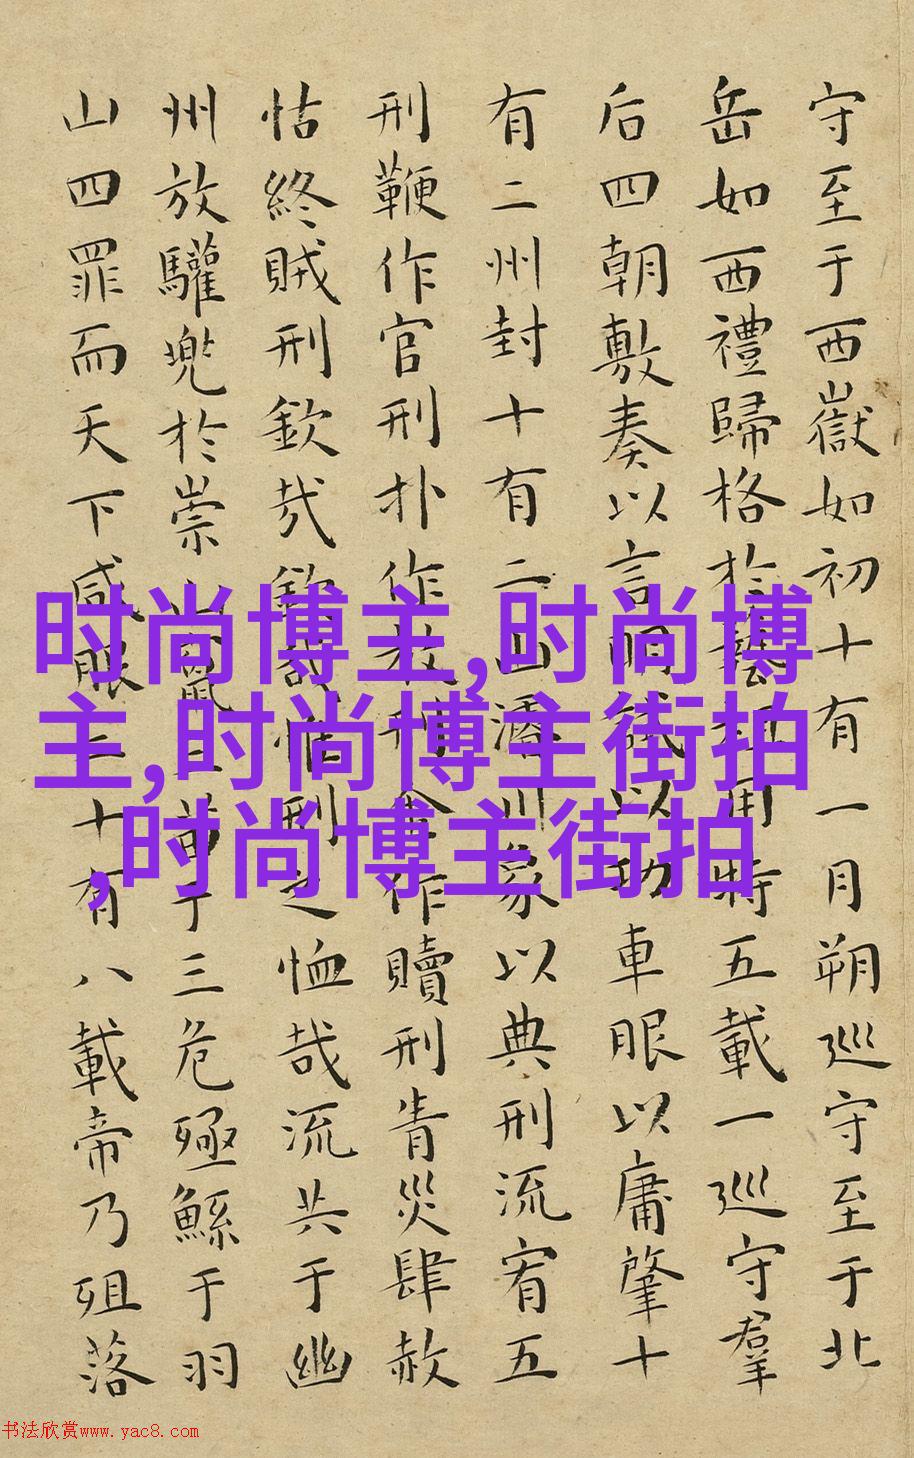 守至于西嶽如初十有一月朔巡守至于北
岳如西禮歸格於藝祖用特五載一巡守羣
后四朝敷奏以言明試以功車服以庸肇十
有二州封十有二山濬川象以典刑流宥五
刑鞭作官刑扑作教刑金作贖刑眚災肆赦
怙終賊刑欽哉欽哉惟刑之恤哉流共于幽
州放驩兜於崇山竄三苗于三危殛鯀于羽
山四罪而天下咸服二十有八載帝乃殂落
时尚博主,时尚博
主,时尚博主街拍
,时尚博主街拍
书法欣赏www.yac8.com